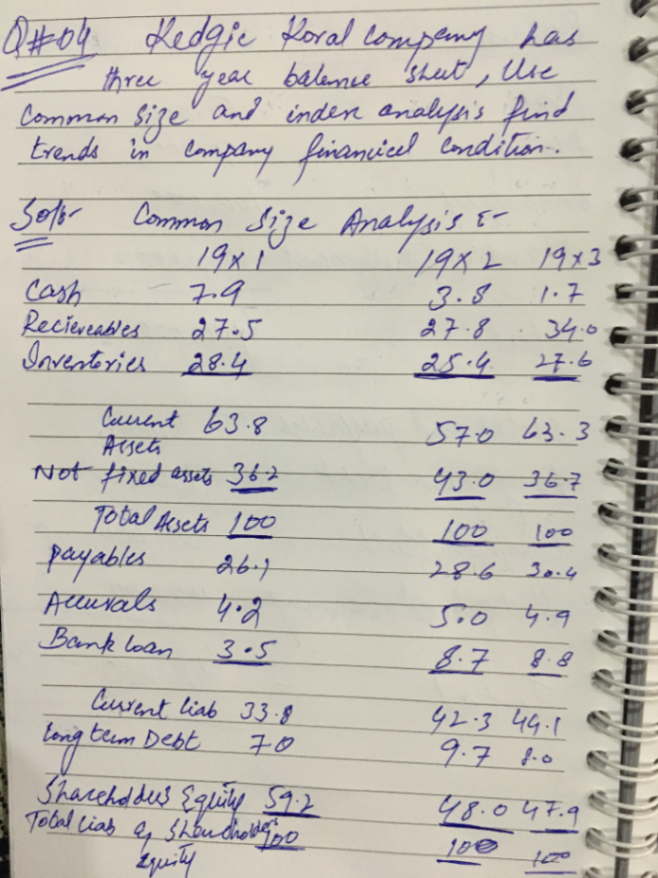 Q#04 Kedgie Koral company has
three year balance sheet, Use
Common Size and index analysis find
trends in company financicel condition.
Sol:- Common Size Analysis :-
19x1 19x2 19x3
Cash 7.9 3.8 1.7
Reciereables 27.5 27.8 34.0
Inventories 28.4 25.4 27.6
Current Assets 63.8 57.0 63.3
Not fixed assets 36.2 43.0 36.7
Total Assets 100 100 100
payables 26.1 28.6 30.4
Accuvals 4.2 5.0 4.9
Bank loan 3.5 8.7 8.8
Current liab 33.8 42.3 44.1
long term Debt 70 9.7 8.0
Shareholdes Equity 59.2 48.0 47.9
Total liab & Shareholders 100 100 100
Equity